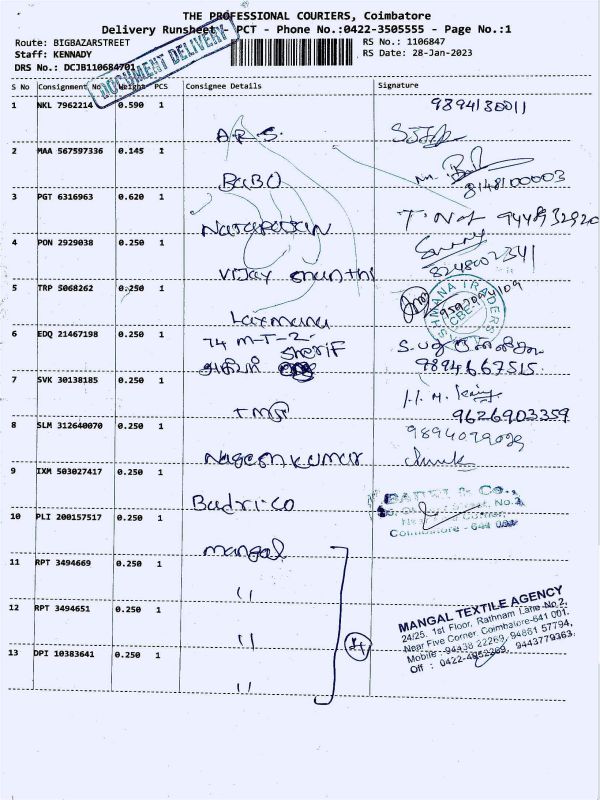 THE PROFESSIONAL COURIERS, Coimbatore
Delivery Runsheet - PCT - Phone No.:0422-3505555 - Page No.:1
Route: BIGBAZARSTREET RS No.: 1106847
Staff: KENNADY RS Date: 28-Jan-2023
DRS No.: DCJB110684701
DOCUMENT DELIVERY
S No Consignment No Weight PCS Consignee Details Signature
1 NKL 7962214 0.590 1 A.R.S. 9894130011
2 MAA 567597336 0.145 1 BABO 8148100003
3 PGT 6316963 0.620 1 Natarajan 9448932920
4 PON 2929038 0.250 1 Vijay Shanthi 8248002341
5 TRP 5068262 0.250 1 Laxmana
6 EDQ 21467198 0.250 1 74 M-T-2-
Sherif
9894667515.
7 SVK 30138185 0.250 1 TMP 9626903359
8 SLM 312640070 0.250 1 Nageshkumar 9894079029
9 IXM 503027417 0.250 1 Badri.co
BADRI & Co.,
Coimbatore - 641 001
10 PLI 200157517 0.250 1 mangal
11 RPT 3494669 0.250 1 "
12 RPT 3494651 0.250 1 "
13 DPI 10383641 0.250 1 "
4
MANGAL TEXTILE AGENCY
24/25, 1st Floor, Rathnam Lane No.2,
Near Five Corner, Coimbatore-641 001.
Mobile : 94438 22269, 94861 57794,
Off : 0422-4952269, 9443779363.